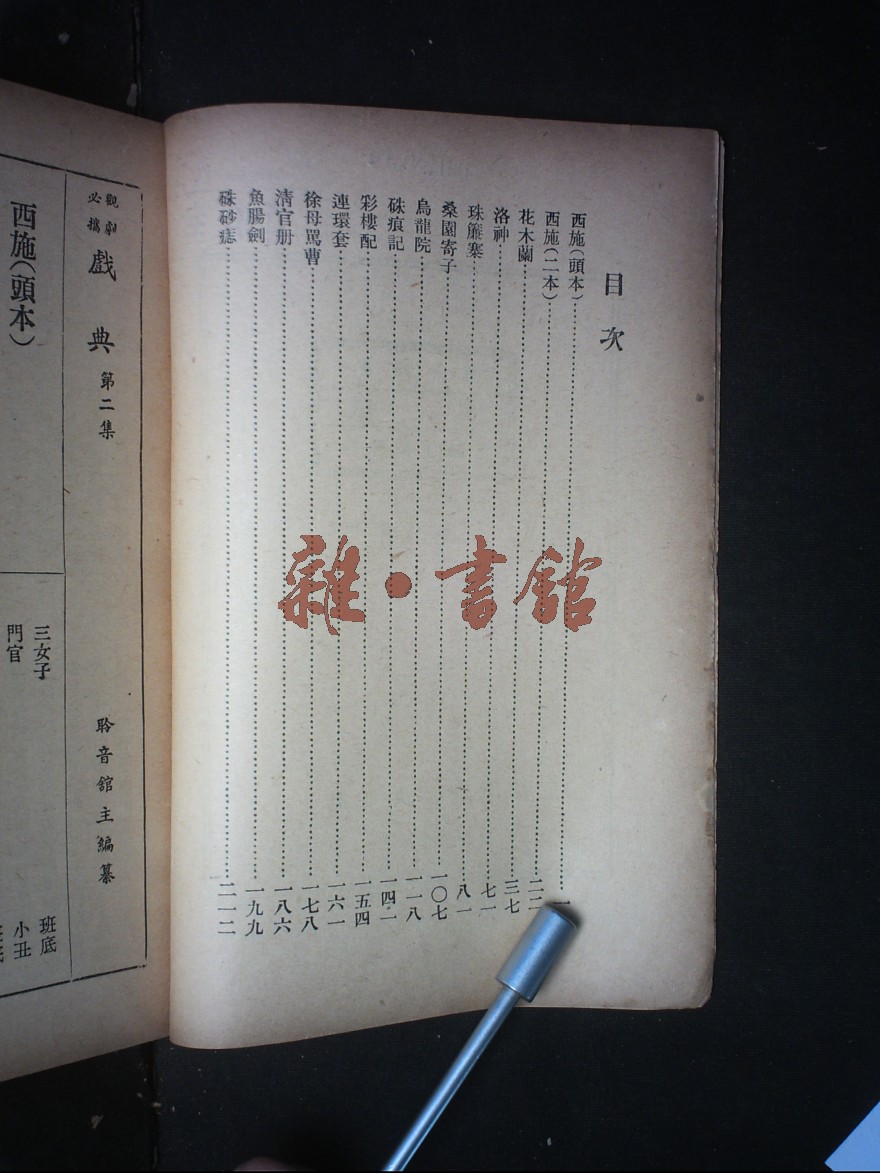 目次
西施(頭本)……一
西施(二本)……二二
花木蘭……三七
洛神……七一
珠簾寨……八一
桑園寄子……一〇七
烏龍院……一一八
硃痕記……一四一
彩樓配……一五四
連環套……一六一
徐母罵曹……一七八
清官册……一八六
魚腸劍……一九九
硃砂痣……二一二
觀劇必攜
戲典 第二集 聆音館主編纂
西施(頭本)
三女子 班底
門官 小丑
雜·書館